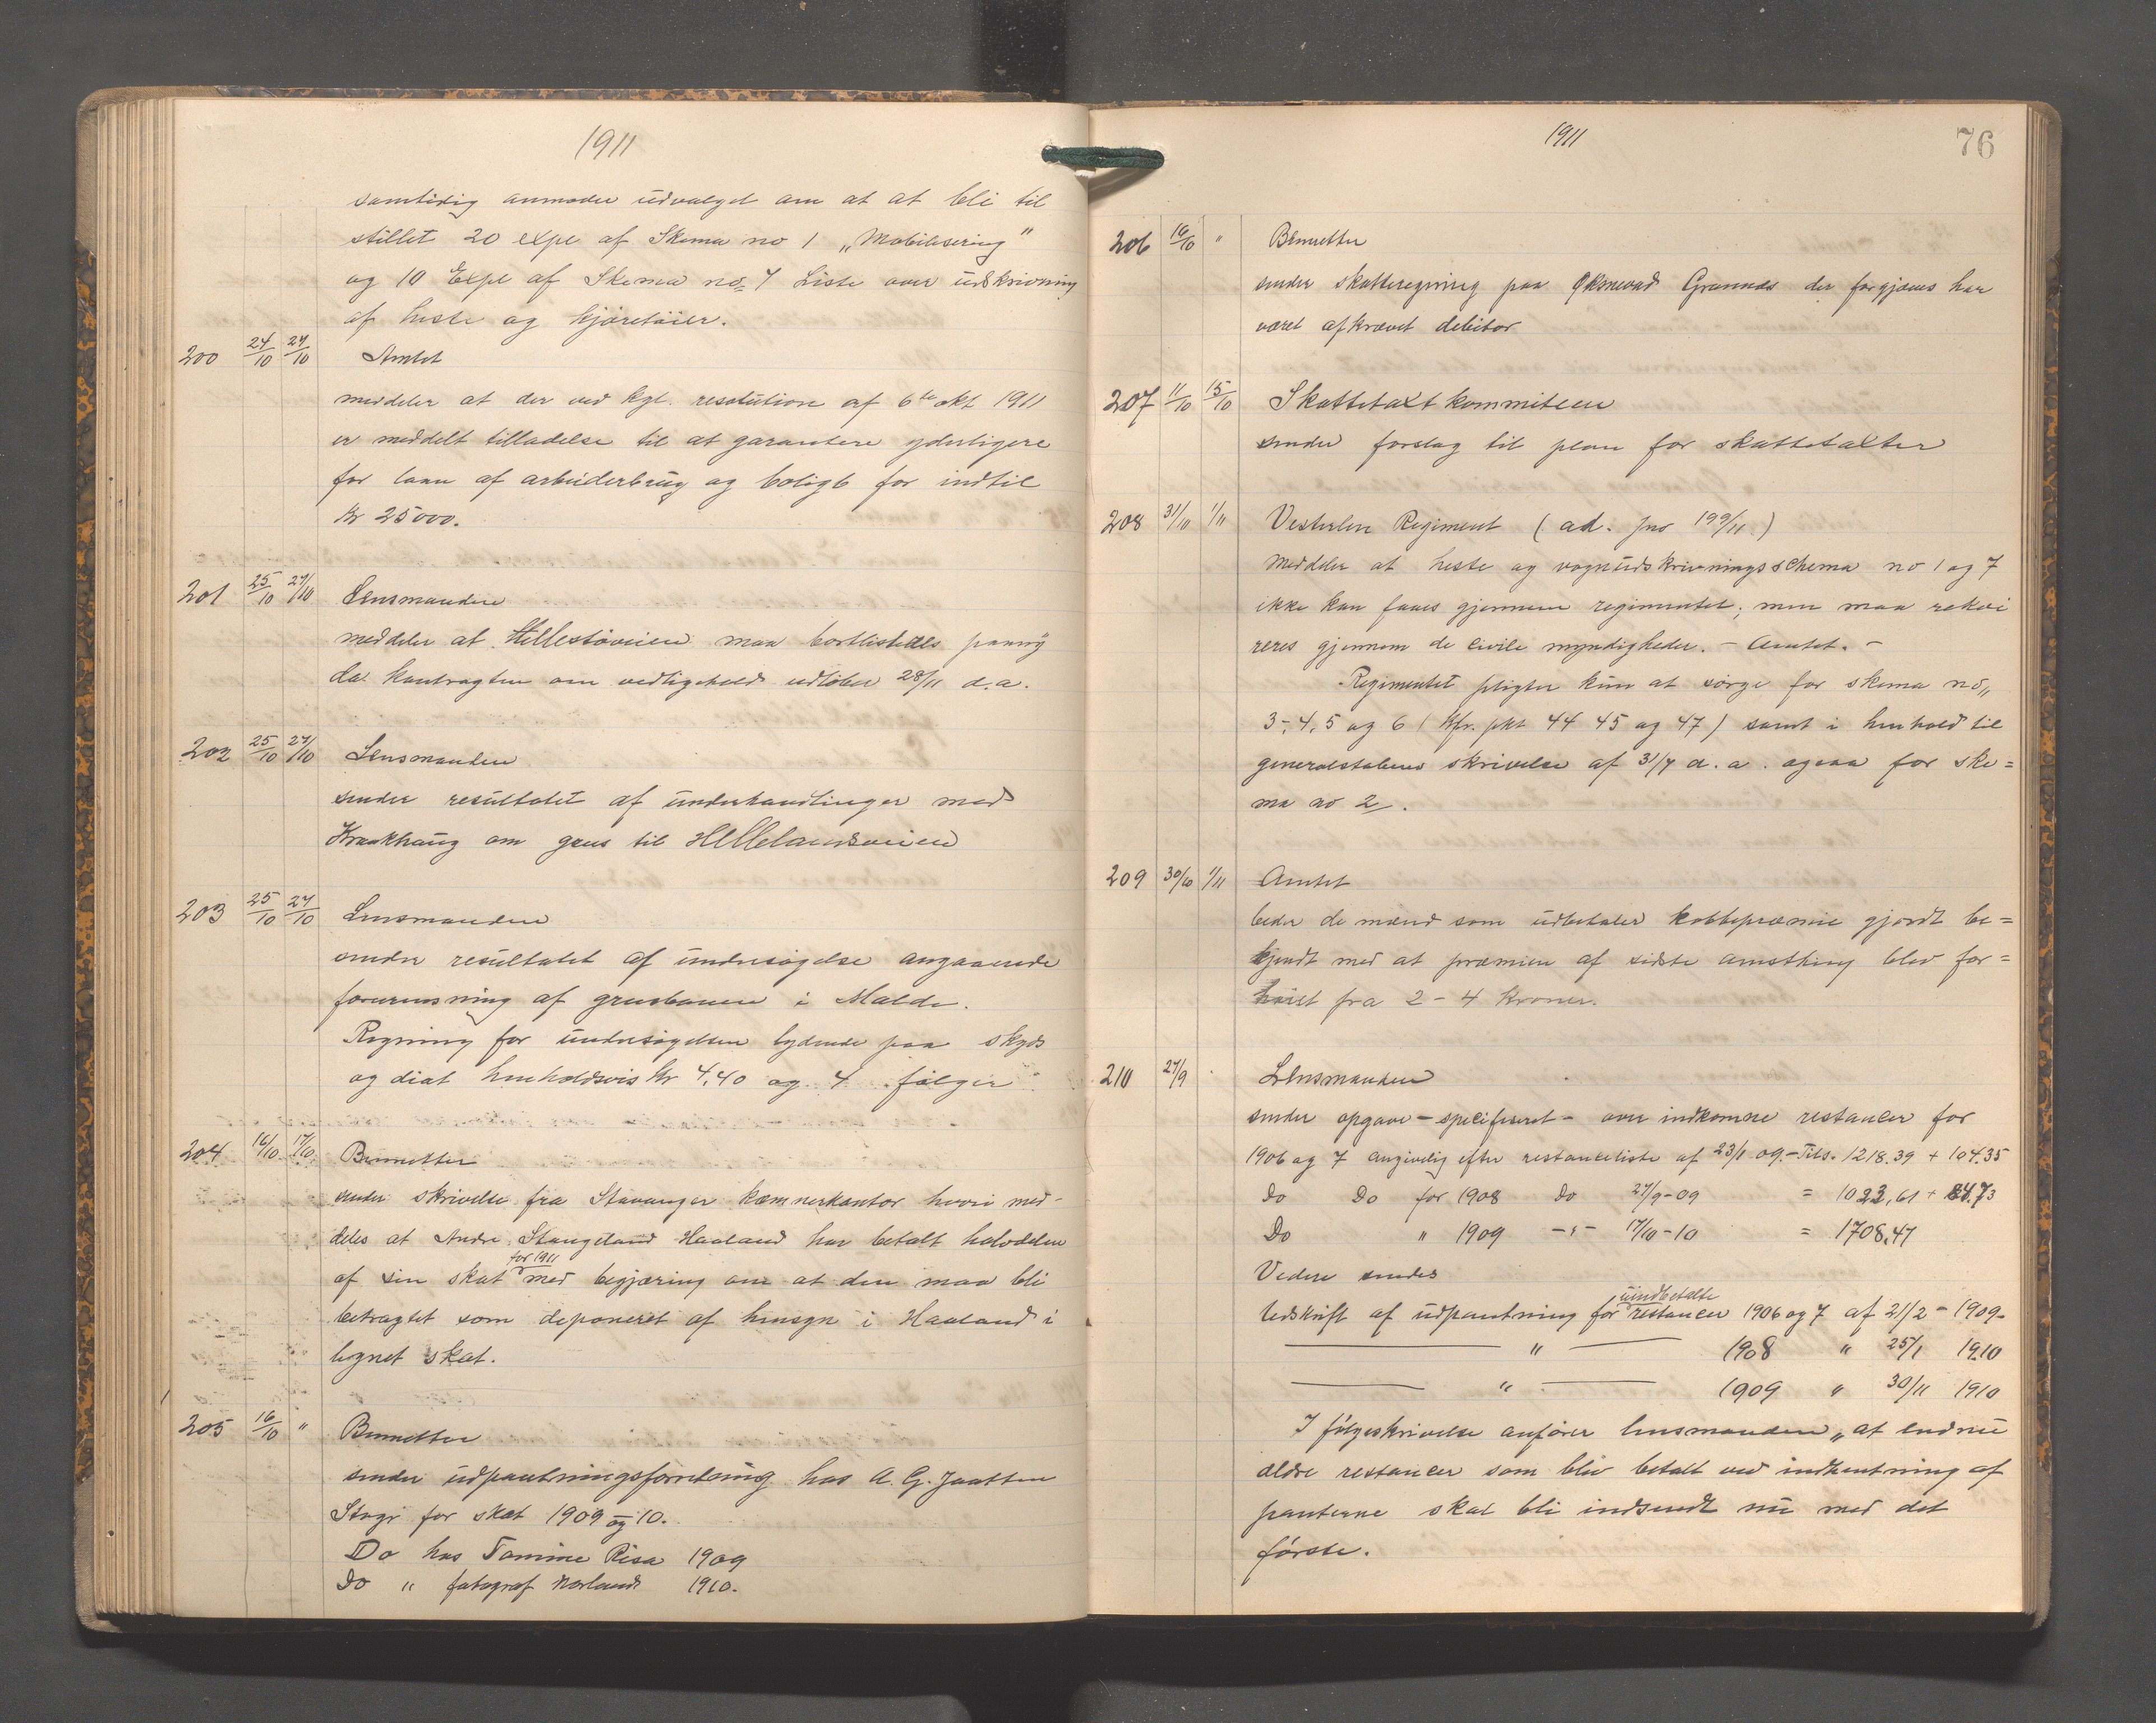 1911
samtidig anmoder udvalget om at at bli til
stillet 20 expl af Skema no 1 „Mobilisering"
og 10 Expl af Skema no 7 Liste over udskrivning
af heste og kjøretøier.
200 24/10 27/10 Amtet
meddeler at der ved kgl. resolution af 6te okt 1911
er meddelt tilladelse til at garantere yderligere
for laan af arbeiderbrug og boligb for indtil
kr 25000.
201 25/10 27/10 Lensmanden
meddeler at Hellestøveien maa bortlisteres paany
da kontragten om vedligehold udløber 28/11 d.a.
202 25/10 27/10 Lensmanden
sender resultatet af underhandlinger med
Kraakhaug om grus til Hellelandsveien
203 25/10 27/10 Lensmanden
sender resultatet af undersøgelse angaaende
forurensning af grusbanen i Malde.
Regning for undersøgelsen lydende paa skyds
og diæt henholdsvis kr 4,40 og 4 følger
204 16/10 17/10 Benneter
sender skrivelse fra Stavanger kæmnerkontor hvori med-
deles at Andre Stangeland Haaland har betalt halvdelen
af sin skat for 1911 med begjæring om at den maa bli
betragtet som deponeret af hensyn i Haaland i
lignet skat.
205 16/10 " Bennetter
sender udpantningsforretning hos A. G. Jaatten
Stogr for skat 1909 og 10.
Do hos Tomine Risa 1909
Do " fotograf Norland 1910.
1911
76
206 16/10 " Bennetter
sender skatteregning paa Øksnevad Grannes der forgjæves har
været afkrævet debitor
207 11/10 15/10 Skattetaxtkommiteen
sender forslag til plan for skattetaxter
208 31/10 1/11 Vesterlen Regiment (ad. Jno 199/11)
Meddeler at heste og vognudskrivningsschema no 1 og 7
ikke kan faaes gjennem regimentet; men maa rekvi
reres gjennem de civile myndigheder. - Amtet. -
Regimentet pligter kun at sørge for skema no„
3-,4,5 og 6 (kfr. pkt 44 45 og 47) samt i henhold til
generalstabens skrivelse af 31/7 d.a. ogsaa for ske=
ma no 2.
209 30/10 1/11 Amtet
beder de mænd som udbetaler kobbepræmie gjordt be=
kjendt med at præmien af sidste amsthing blev for=
høiet fra 2 - 4 kroner.
210 27/9 Lensmanden
sender opgave - specifiseret - over indkomne restancer for
1906 og 7 angivelig efter restanceliste af 23/1 09.- Tils. 1218.39 + 104.35
Do Do for 1908 Do 27/9-09 = 1023,61 + 84.73
Do " 1909 -"- 17/10-10 = 1708.47
Videre sendes
Udskrift af udpantning for uindbetalte restancer 1906 og 7 af 21/2 - 1909-
" 1908 " 25/1 1910
" 1909 " 30/11 1910
I følgeskrivelse anfører lensmanden „at endnu
ældre restancer som blev betalt ved indhentning af
panterne skal bli indsendt nu med det
første.